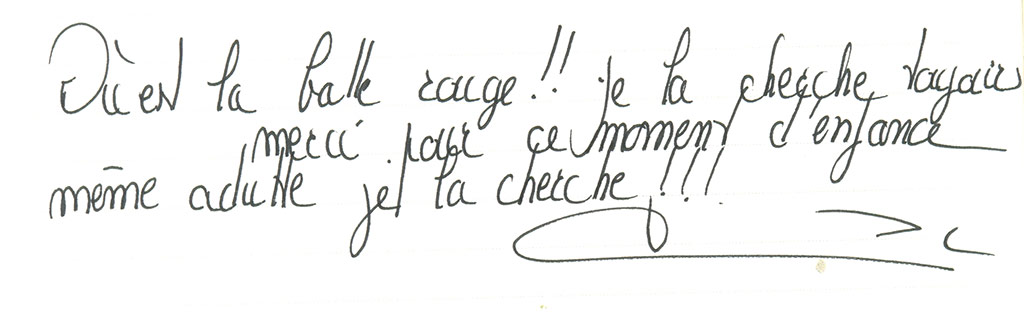 Où est la balle rouge !! je la cherche toujours
merci pour ce moment d'enfance
même adulte je la cherche !!!